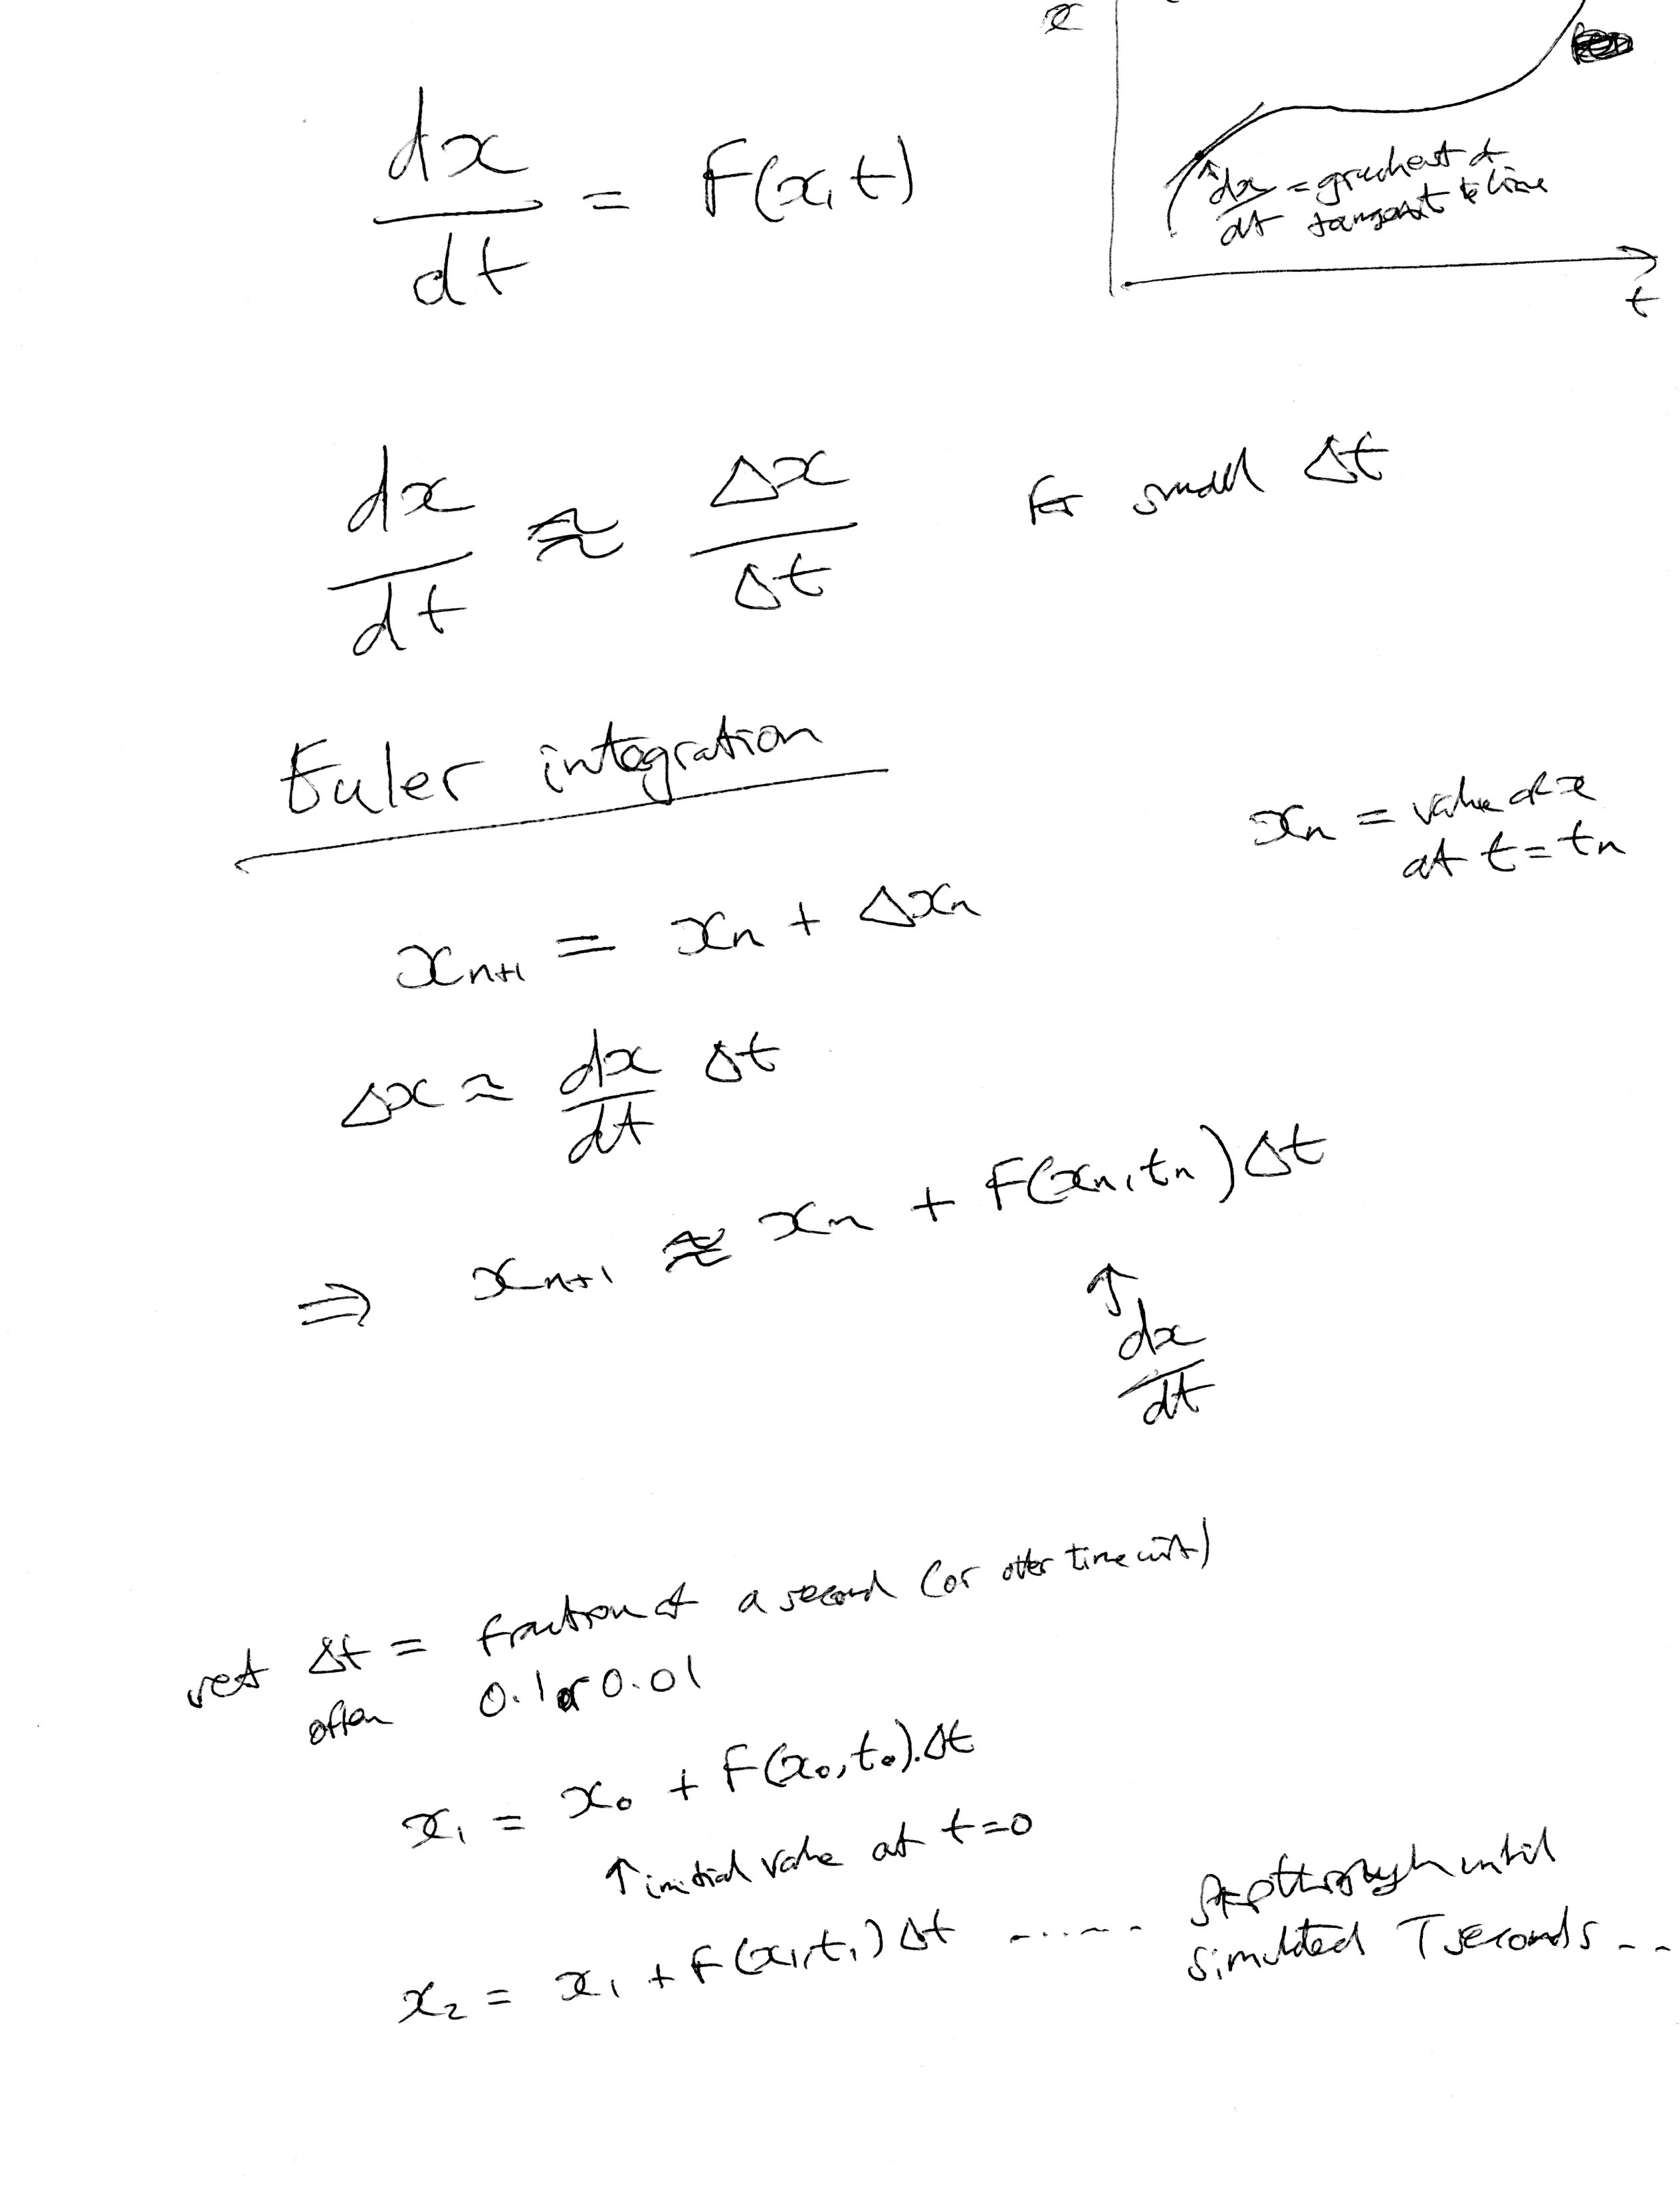 x
dx/dt = F(x,t)
dx/dt = gradient of
tangent to line
t
dx/dt ≈ Δx/Δt for small Δt
Euler integration
xₙ = value of x
at t = tₙ
xₙ₊₁ = xₙ + Δxₙ
Δx ≈ dx/dt Δt
⇒ xₙ₊₁ ≈ xₙ + F(xₙ,tₙ)Δt
↑ dx/dt
set Δt = fraction of a second (or other time unit)
often 0.1 or 0.01
x₁ = x₀ + F(x₀,t₀).Δt
↑ initial value at t=0
x₂ = x₁ + F(x₁,t₁)Δt ...... step through until
simulated T seconds --